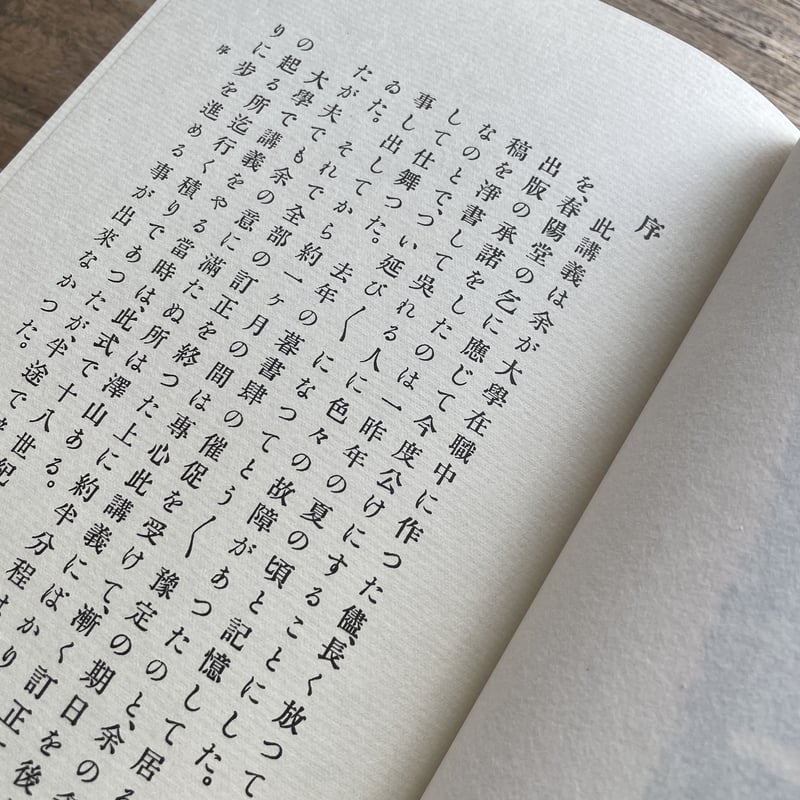 序
此講義は余が大學在職中に作つた儘、長く放つて
を、春陽堂の乞に應じて今度公けにすることにした。
出版の承諾をしたのは一昨年の夏の頃と記憶して居る
稿を淨書して呉れる人に色々の故障があつたのと、余の
なのとで、つい延び〱になつてとう〱豫定の期日を後
して仕舞つた。去年の暮書肆の催促を受けて、漸く訂正
事し出してから約一ヶ月の間は專心此講義にばかり
ゐた。それで全部の訂正を終つた上に約半分程
たが夫でも余の意に滿たぬ所は澤山ある。
大學で講義をやる當時は、此式で十八世紀
の起る所迄行く積りであつたが、半途で
りに歩を進める事が出來なかつた。
序